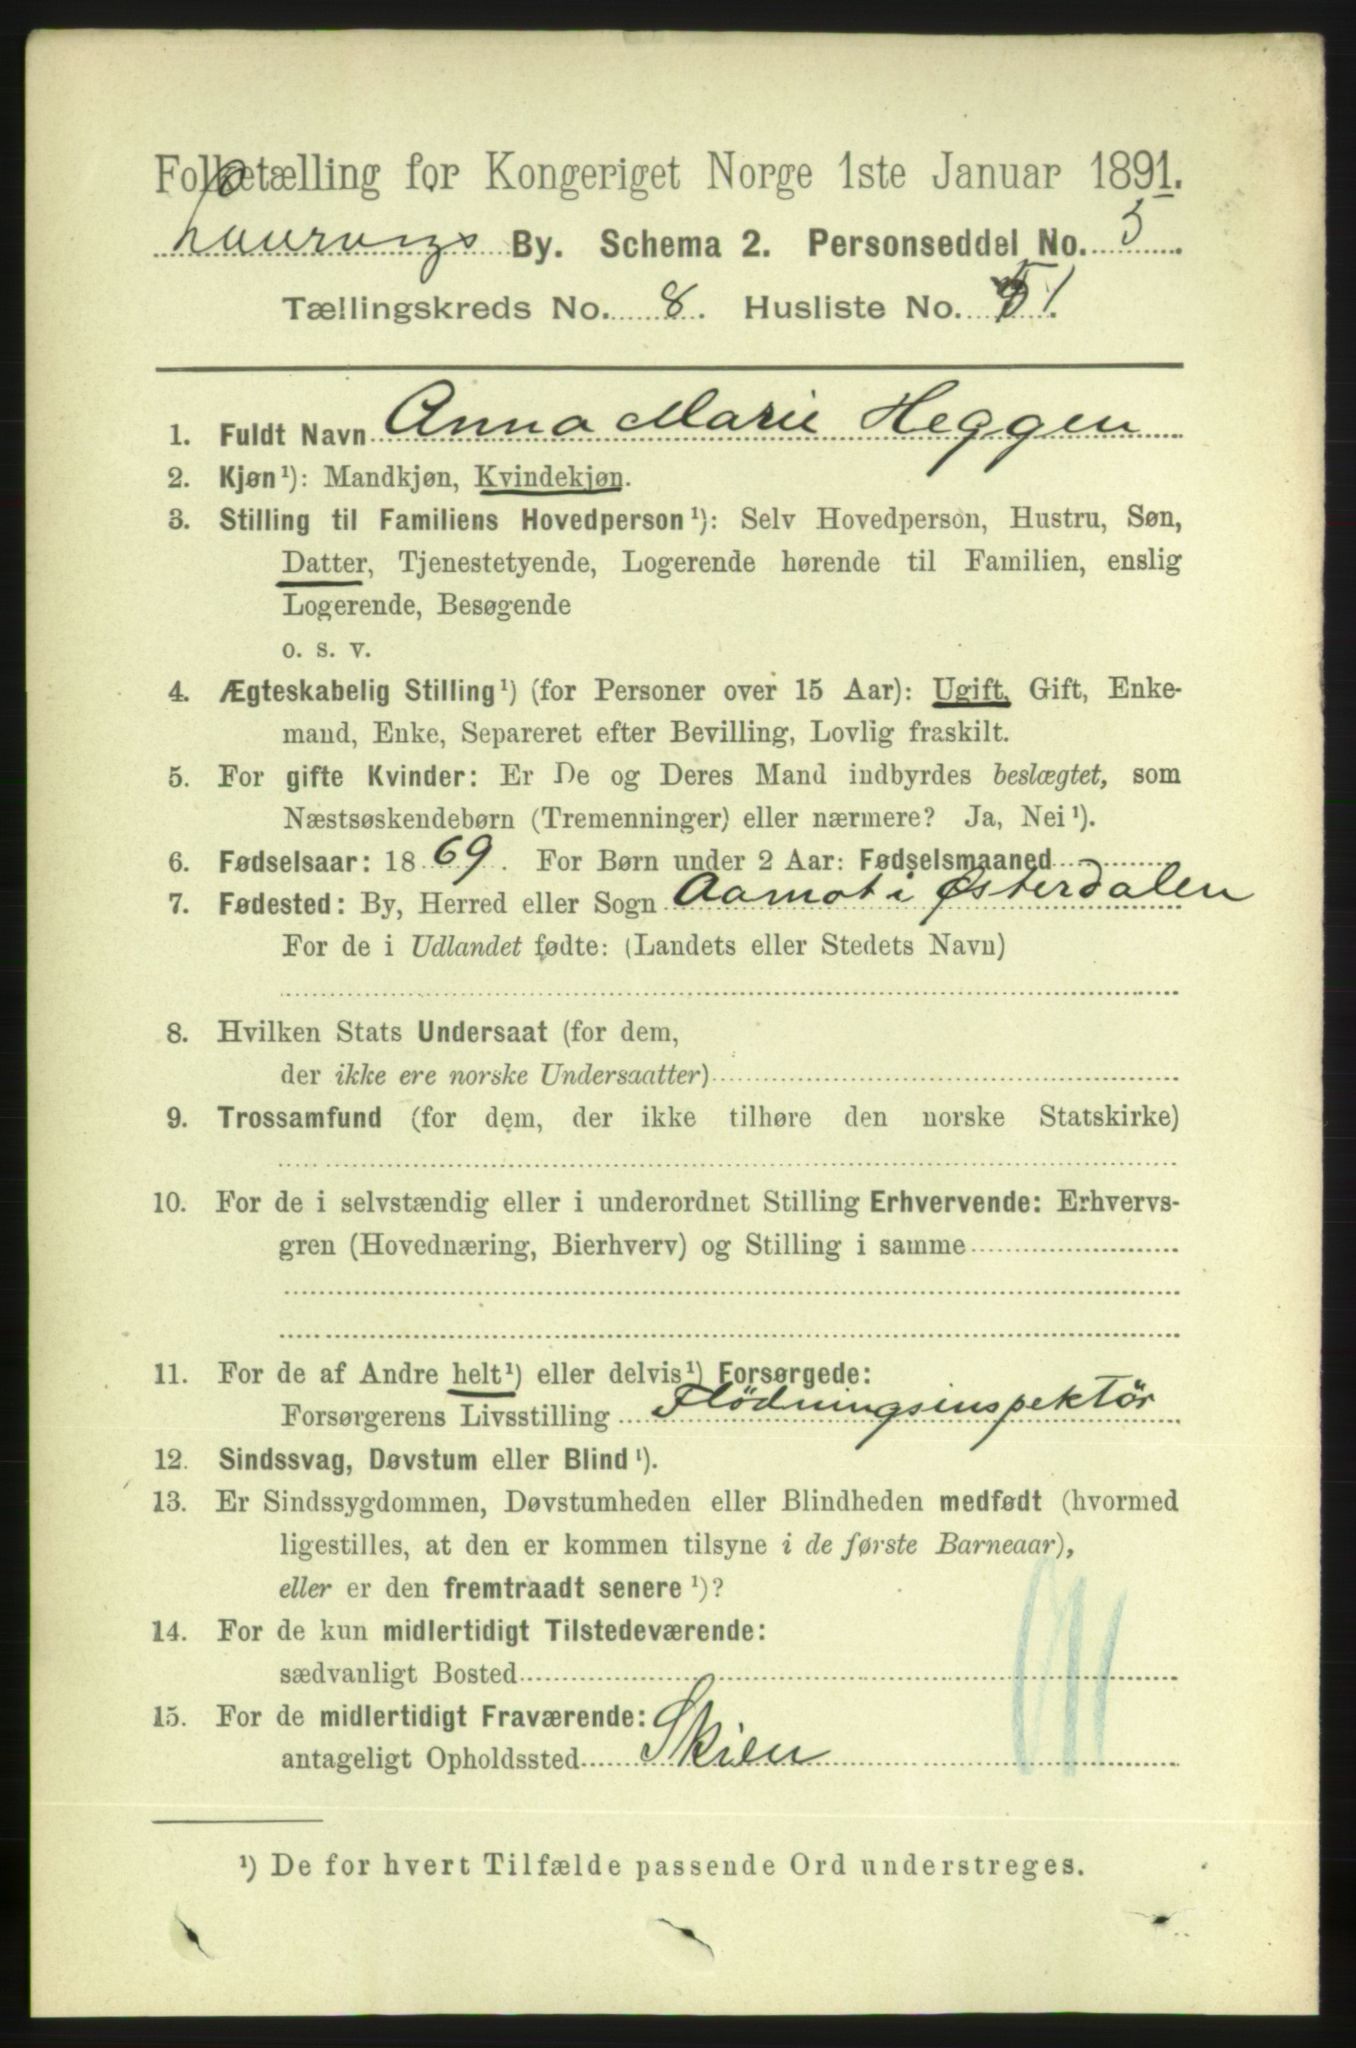 Folketælling for Kongeriget Norge 1ste Januar 1891.
Laurvigs By. Schema 2. Personseddel No. 5.
Tællingskreds No. 8. Husliste No. 51.
1. Fuldt Navn Anna Marie Heggen
2. Kjøn¹): Mandkjøn, Kvindekjøn.
3. Stilling til Familiens Hovedperson¹): Selv Hovedperson, Hustru, Søn,
Datter, Tjenestetyende, Logerende hørende til Familien, enslig
Logerende, Besøgende
o. s. v.
4. Ægteskabelig Stilling¹) (for Personer over 15 Aar): Ugift, Gift, Enke-
mand, Enke, Separeret efter Bevilling, Lovlig fraskilt.
5. For gifte Kvinder: Er De og Deres Mand indbyrdes beslægtet, som
Næstsøskendebørn (Tremenninger) eller nærmere? Ja, Nei¹).
6. Fødselsaar: 1869. For Børn under 2 Aar: Fødselsmaaned
7. Fødested: By, Herred eller Sogn Aamot i Østerdalen
For de i Udlandet fødte: (Landets eller Stedets Navn)
8. Hvilken Stats Undersaat (for dem,
der ikke ere norske Undersaatter)
9. Trossamfund (for dem, der ikke tilhøre den norske Statskirke)
10. For de i selvstændig eller i underordnet Stilling Erhvervende: Erhvervs-
gren (Hovednæring, Bierhverv) og Stilling i samme
11. For de af Andre helt¹) eller delvis¹) Forsørgede:
Forsørgerens Livsstilling Flödningsinspektör
12. Sindssvag, Døvstum eller Blind¹).
13. Er Sindssygdommen, Døvstumheden eller Blindheden medfødt (hvormed
ligestilles, at den er kommen tilsyne i de første Barneaar),
eller er den fremtraadt senere¹)?
14. For de kun midlertidigt Tilstedeværende:
sædvanligt Bosted
15. For de midlertidigt Fraværende:
antageligt Opholdssted Skien
¹) De for hvert Tilfælde passende Ord understreges.